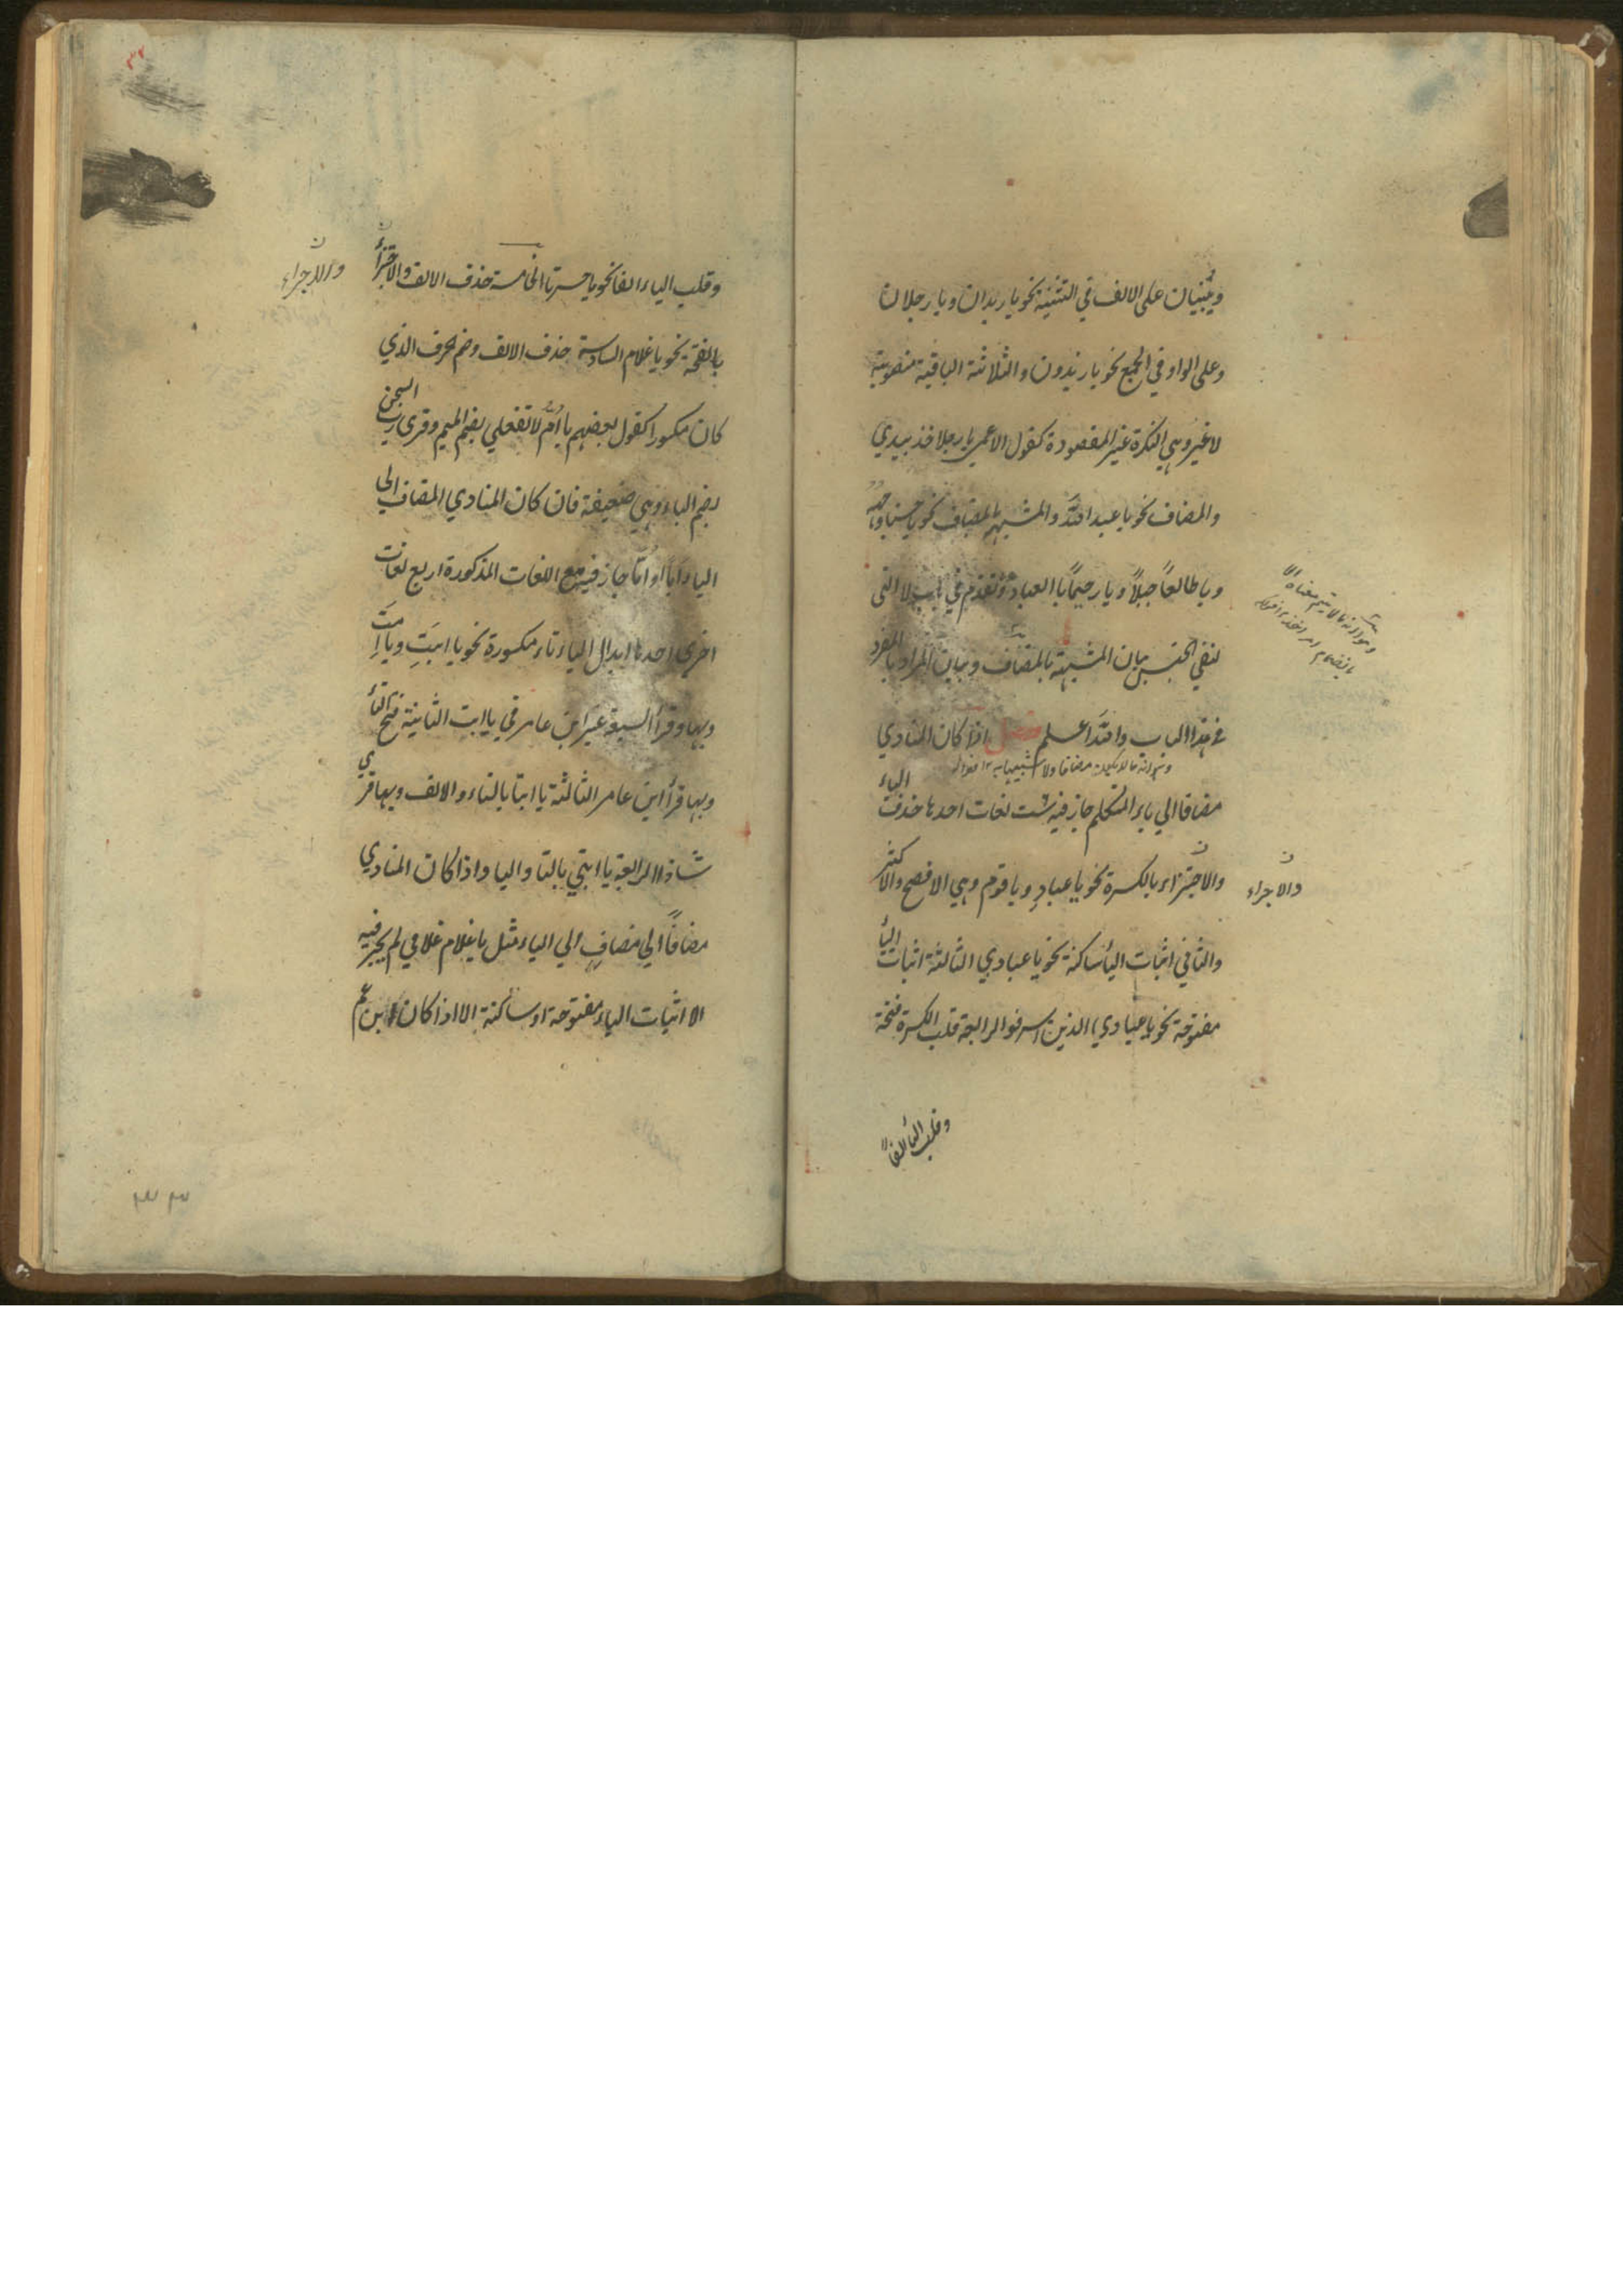 ويبنيان على الالف في التثنية نحو يا زيدان ويا رجلان
وعلى الواو في الجمع نحو يا زيدون والثلاثة الباقية منصوبة
لا غير وهي النكرة غير المقصودة كقول الاعمى يا رجلا خذ بيدي
والمضاف نحو يا عبد الله والمشبه بالمضاف نحو يا حسنا وجهه
ويا طالعاً جبلاً ويا رحيماً بالعباد وتقدم في باب لا التى
لنفي الجنس بيان المشبهة بالمضاف وبيان المراد بالمفرد
في هذا الباب والله اعلم فصل اذا كان المنادي
وهو انه ما لا يكون مضافا ولا شبيها به ١٢
مضافا الي ياء المتكلم جاز فيه ست لغات احدها حذف الياء
والاجتزاء بالكسرة نحو يا عبادِ ويا قوم وهي الافصح والاكثر
والاجراء
والثاني اثبات الياء ساكنة نحو يا عبادي الثالثة اثبات الياء
مفتوحة نحو يا عبادي الذين اسرفوا الرابعة قلب الكسرة فتحة
وقلب الياء الفاً
وقلب الياء الفا نحو يا حسرتا الخامسة حذف الالف والاجتزاء
والاجراء
بالفتحة نحو يا غلام السادسة حذف الالف وضم الحرف الذي
كان مكسورا كقول بعضهم يا اُمُّ لا تفعلي بضم الميم وقرى رب السجن
بضم الباء وهي ضعيفة فان كان المنادي المضاف الى
الياء اباً او امّا جاز فيه مع اللغات المذكورة اربع لغات
اخرى احدها ابدال الياء تاء مكسورة نحو يا ابتِ ويا امت
وبها وقرأ السبعة غير ابن عامر في يا ابت الثانية فتح التاء
وبها قرأ ابن عامر الثالثة يا ابتا بالتاء والالف وبها قري
شاذا الرابعة يا ابتي بالتا واليا واذا كان المنادي
مضافاً الي مضافٍ الي الياء مثل يا غلام غلامي لم يجز فيه
الا اثبات الياء مفتوحة او ساكنة الا اذا كان ابن عم
٣٣